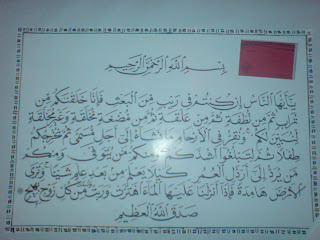 بسم الله الرحمن الرحيم
يأيها الناس إن كنتم في ريب من البعث فإنا خلقنكم من
تراب ثم من نطفة ثم من علقة ثم من مضغة مخلقة وغير مخلقة
لنبين لكم ونقر في الأرحام ما نشاء إلى أجل مسمى ثم نخرجكم
طفلا ثم لتبلغوا أشدكم ومنكم من يتوفى ومنكم
من يرد إلى أرذل العمر لكيلا يعلم من بعد علم شيئا وترى
الأرض هامدة فإذا أنزلنا عليها الماء اهتزت وربت من كل زوج بهيج
صدق الله العظيم